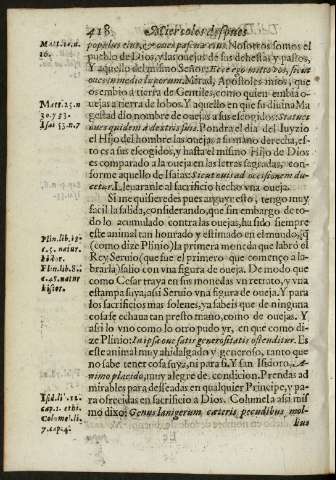 418 Miercoles despues
populus eius, & oues pascuæ eius. Nosotros somos el
pueblo de Dios, y las ouejas de sus dehessas y pastos.
Y aquello del mismo Señor: Ecce ego mitto vos, sicut
oues in medio luporum. Mirad, Apostoles mios, que
os embio a tierra de Gentiles, como quien embia o-
uejas a tierra de lobos. Y aquello en que su diuina Ma
gestad dio nombre de ouejas a sus escogidos: Statuet
oues quidem à dextris suis. Pondra el dia del Iuyzio
el Hijo del hombre las ouejas, a su mano derecha, es-
to es a sus escogidos, y hasta el mismo Hijo de Dios
es comparado a la oueja en las letras sagradas, con-
forme aquello de Isaias: Sicut ouis ad occisionem du-
cetur. Lleuaranle al sacrificio hecho vna oueja.
Si me quisieredes pues arguyr esto, tengo muy
facil la salida, considerando, que sin embargo de to-
do lo acumulado contra las ouejas, ha sido siempre
este animal tan honrado y estimado en el mundo, q̃
(como dize Plinio) la primera moneda que labró el
Rey Seruio (que fue el primero que començo a la-
brarla) salio con vna figura de oueja. De modo que
como Cesar traya en sus monedas vn retrato, y vna
estampa suya, assi Seruio vna figura de oueja. Y para
los sacrificios mas solenes, ya sabeis que de ninguna
cosa se echaua tan presto mano, como de ouejas. Y
assi lo vno como lo otro pudo yr, en que como di-
ze Plinio: In ipsa oue satis generositatis ostenditur. Es
este animal muy ahidalgado y generoso, tanto que
no sabe tener cosa suya, ni para si. Y san Isidoro, A-
nimo placido, muy alegre de condicion. Prendas ad
mirables para desseadas en qualquier Principe, y pa-
ra ofrecidas en sacrificio a Dios. Columela assi mis
mo dixo: Genus lanigerum, cæteris pecudibus mol-
lius
Matt. 10. n.
16.
Matt. 25. n
30. y 33.
Isai 53. n. 7
Plin. lib. 18.
c. 3. natur
histor.
Plin. lib. 8.
c. 48. natur
histor.
Isid. li. 12.
cap. 1. ethi.
Colume. li.
7. cap. 4.